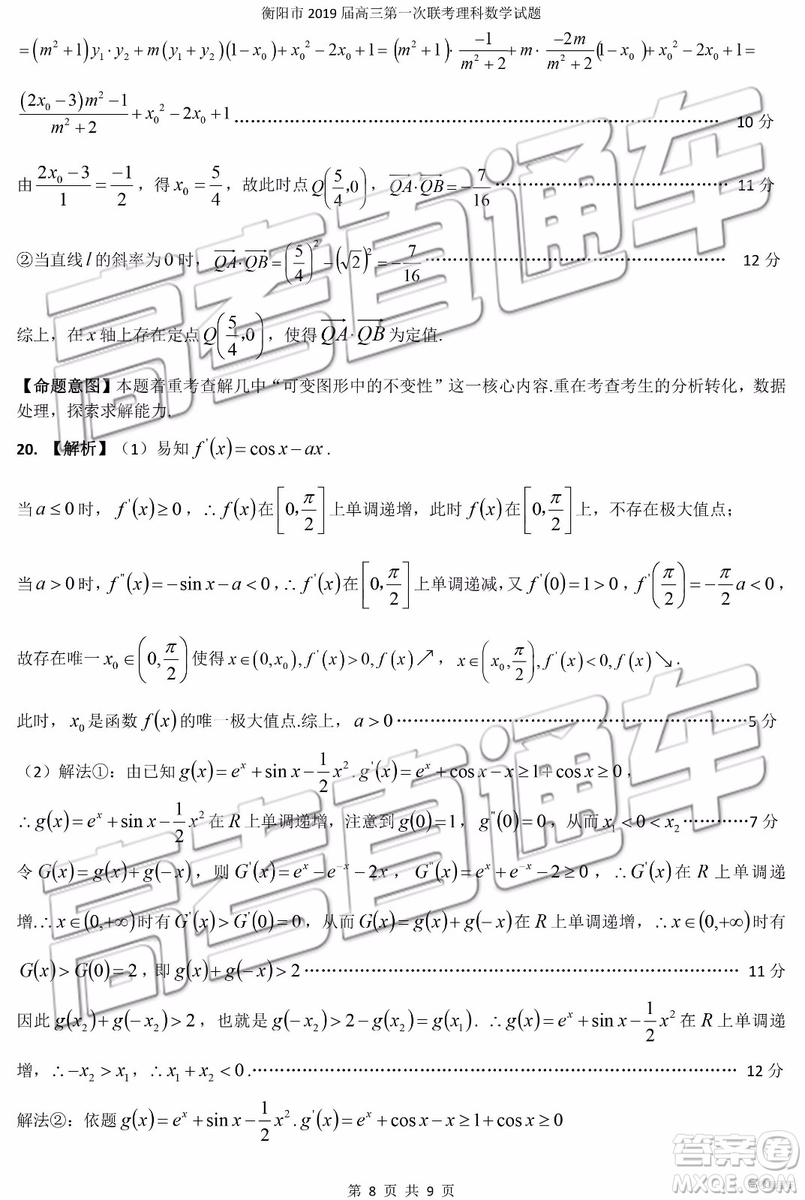 衡阳市 2019 届高三第一次联考理科数学试题
=(m²+1)y₁·y₂+m(y₁+y₂)(1-x₀)+x₀²-2x₀+1=(m²+1)·\frac{-1}{m²+2}+m·\frac{-2m}{m²+2}(1-x₀)+x₀²-2x₀+1=
\frac{(2x₀-3)m²-1}{m²+2}+x₀²-2x₀+1…………………………………………………… 10 分
由\frac{2x₀-3}{1}=\frac{-1}{2}，得 x₀=\frac{5}{4}，故此时点 Q(\frac{5}{4},0)，\overrightarrow{QA}·\overrightarrow{QB}=-\frac{7}{16}…………………………… 11 分
②当直线 l 的斜率为 0 时，\overrightarrow{QA}·\overrightarrow{QB}=(\frac{5}{4})²-(\sqrt{2})²=-\frac{7}{16}…………………………………… 12 分
综上，在 x 轴上存在定点 Q(\frac{5}{4},0)，使得\overrightarrow{QA}·\overrightarrow{QB}为定值.
【命题意图】本题着重考查解几中“可变图形中的不变性”这一核心内容.重在考查考生的分析转化，数据
处理，探索求解能力.
20. 【解析】（1）易知 f'(x)=cos x-ax.
当 a≤0 时， f'(x)≥0，∴f(x)在[0,\frac{π}{2}]上单调递增，此时 f(x)在[0,\frac{π}{2}]上，不存在极大值点；
当 a>0 时，f''(x)=-sin x-a<0，∴f'(x)在[0,\frac{π}{2}]上单调递减，又 f'(0)=1>0，f'(\frac{π}{2})=-\frac{π}{2}a<0，
故存在唯一 x₀∈(0,\frac{π}{2})使得 x∈(0,x₀),f'(x)>0,f(x)↗，x∈(x₀,\frac{π}{2}),f'(x)<0,f(x)↘.
此时， x₀是函数 f(x)的唯一极大值点.综上，a>0……………………………………………5 分
（2）解法①：由已知 g(x)=eˣ+sin x-\frac{1}{2}x².g'(x)=eˣ+cos x-x≥1+cos x≥0，
∴g(x)=eˣ+sin x-\frac{1}{2}x²在 R 上单调递增，注意到 g(0)=1，g''(0)=0，从而 x₁<0<x₂…………7 分
令 G(x)=g(x)+g(-x)，则 G'(x)=eˣ-e⁻ˣ-2x， G''(x)=eˣ+e⁻ˣ-2≥0，∴G'(x)在 R 上单调递
增∴x∈(0,+∞)时有 G'(x)>G'(0)=0，从而 G(x)=g(x)+g(-x)在 R 上单调递增，∴x∈(0,+∞)时有
G(x)>G(0)=2，即 g(x)+g(-x)>2…………………………………………………………… 11 分
因此 g(x₂)+g(-x₂)>2，也就是 g(-x₂)>2-g(x₂)=g(x₁).∴g(x)=eˣ+sin x-\frac{1}{2}x²在 R 上单调递
增，∴-x₂>x₁，∴x₁+x₂<0.………………………………………………………………… 12 分
解法②：依题 g(x)=eˣ+sin x-\frac{1}{2}x².g'(x)=eˣ+cos x-x≥1+cos x≥0
第 8 页 共 9 页
高考直通车
高考直通车
答案圈
MXQE.COM